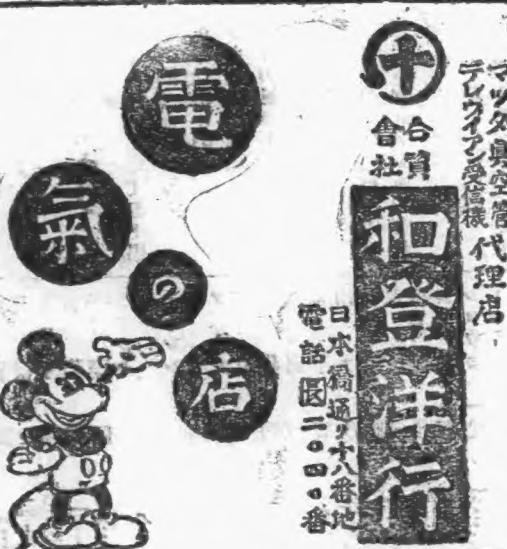 マツダ真空管
テレヴィアン受信機
代理店
十
合資
會社
和登洋行
日本橋通リ十八番地
電話③二〇四〇番
電氣の店